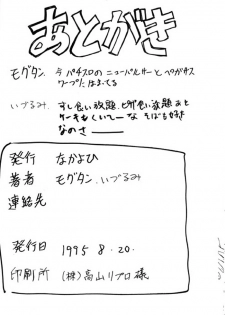 あとがき
モグタン. 今パチスロのニューパルサーとペガサス
ワープにはまってる
いづるみ. すし食い放題、ピザ食い放題あと
ケーキもくいてーな そばも好き
なのさ——
発行 なかよひ
著者 モグタン.いづるみ
連絡先
発行日 1995 8.20.
印刷所 (株)高山リプロ様